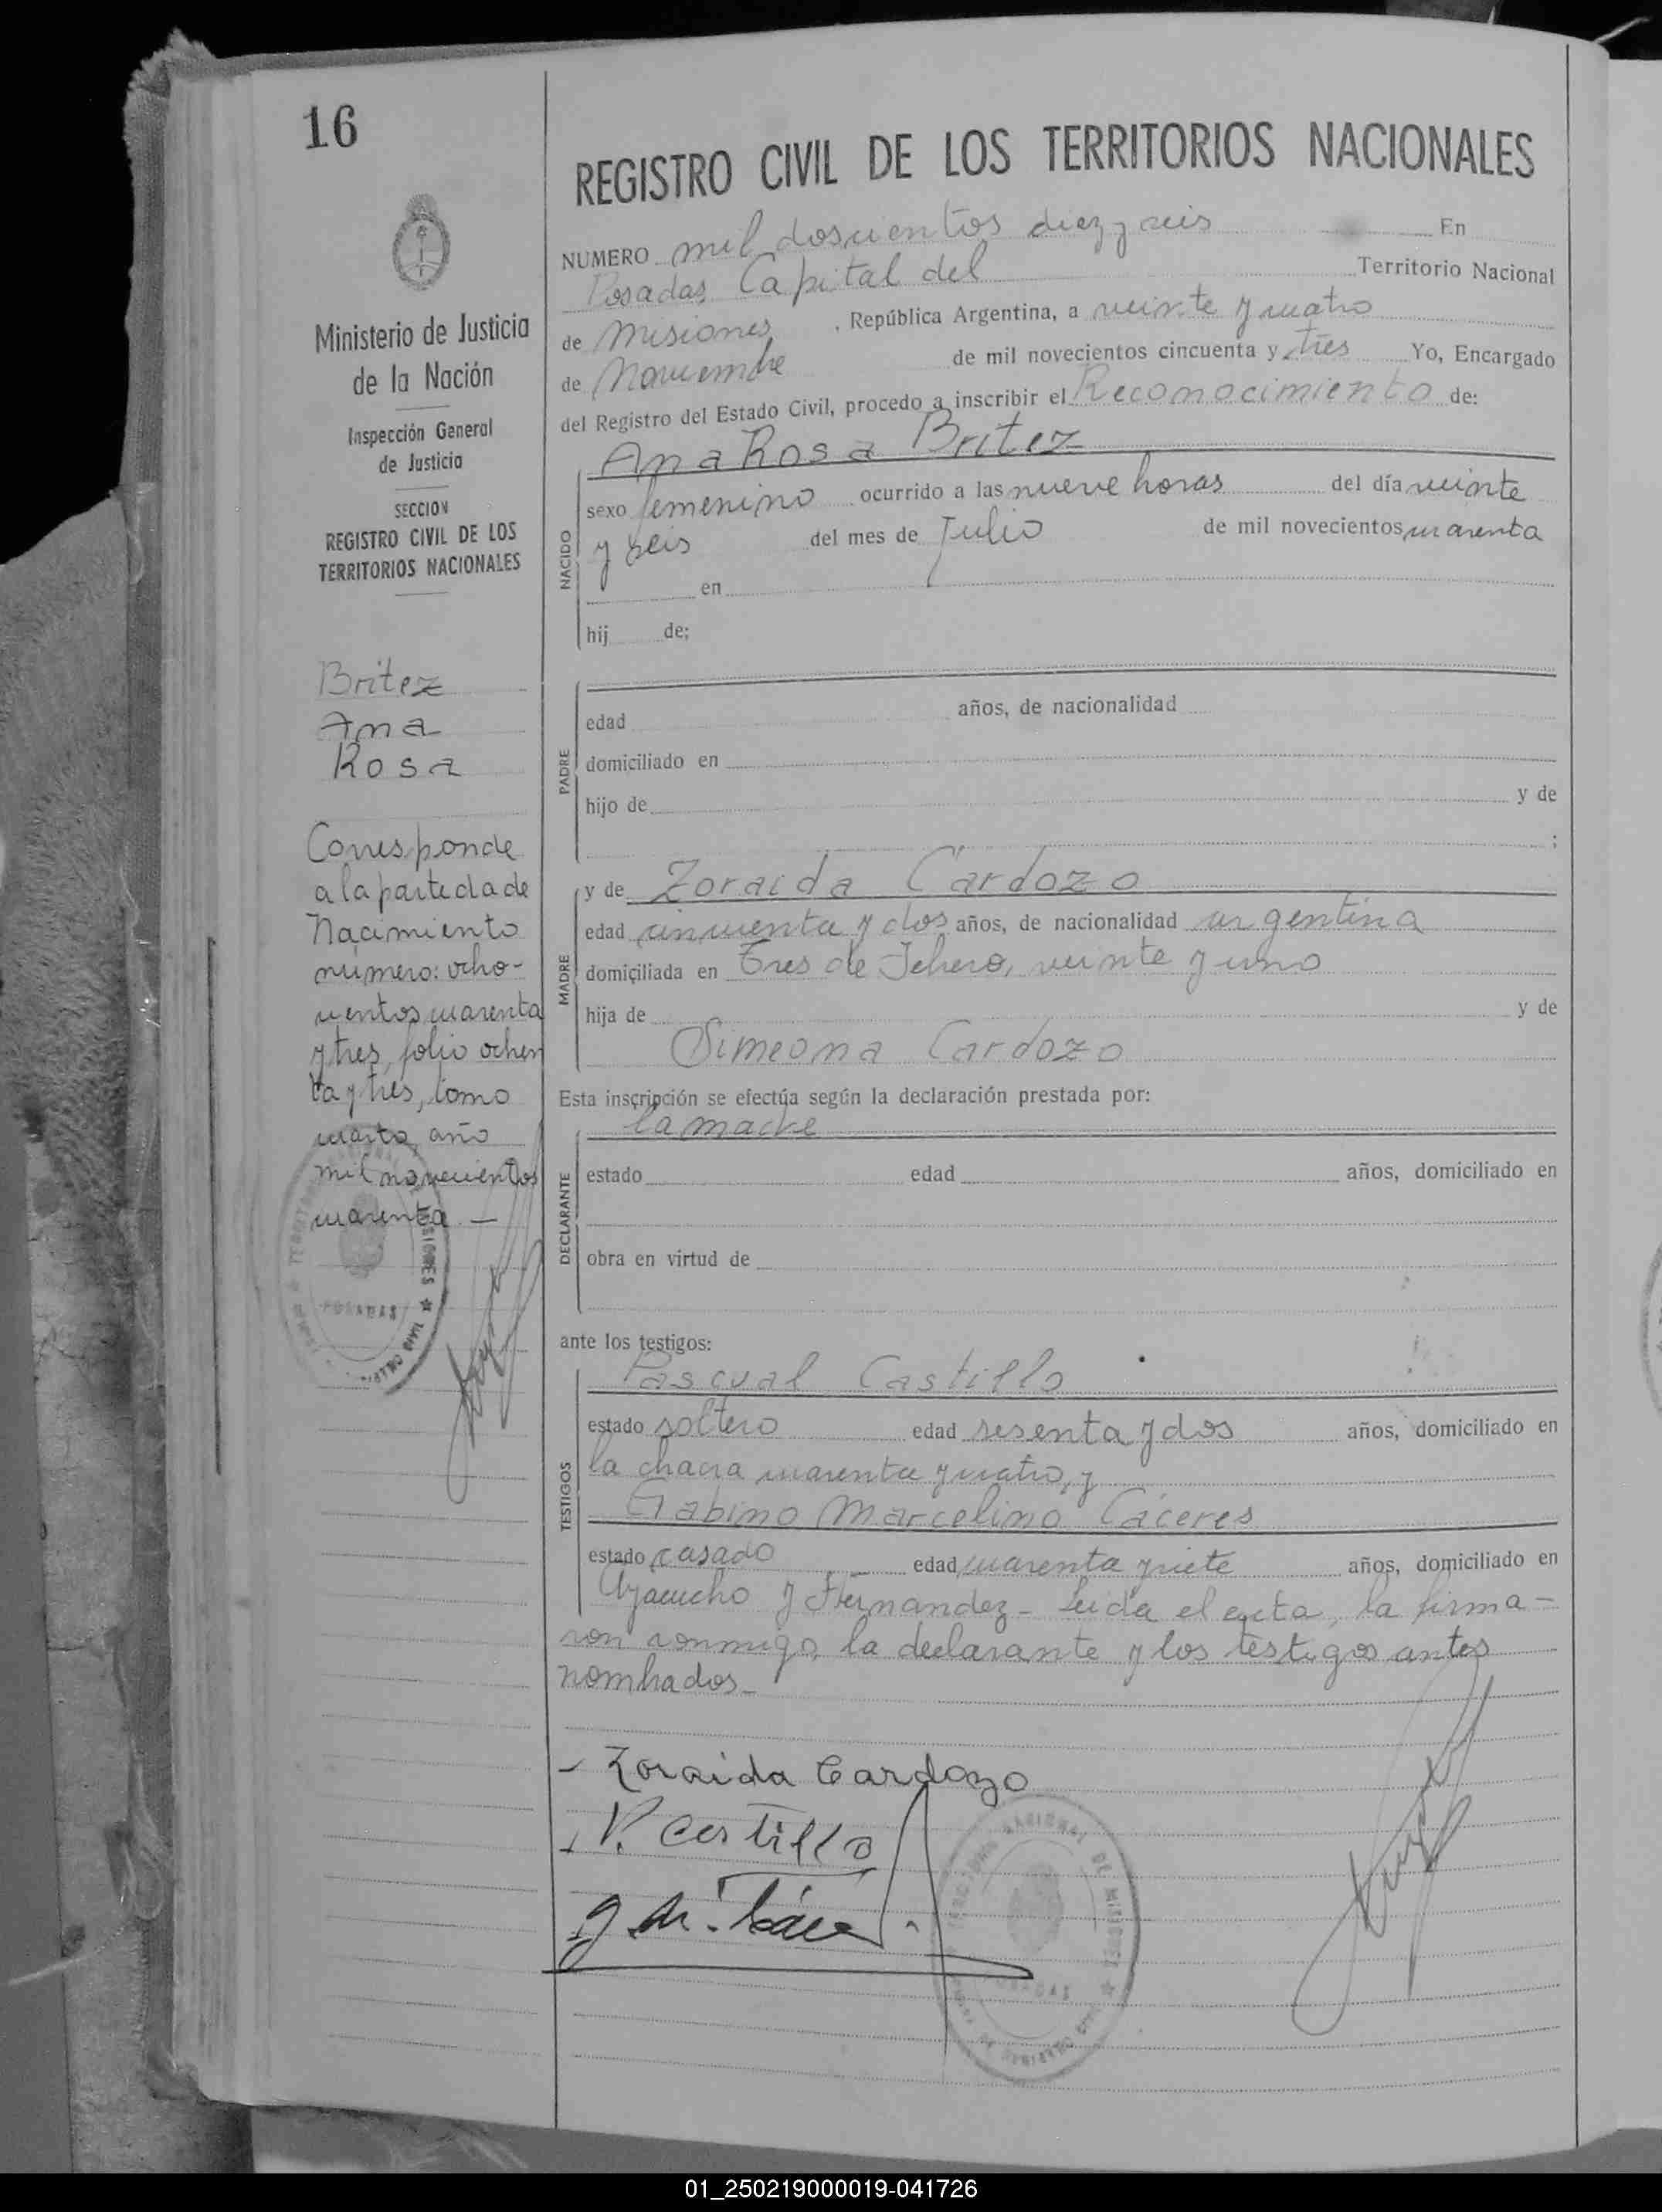 16
Ministerio de Justicia
de la Nación
Inspección General
de Justicia
SECCION
REGISTRO CIVIL DE LOS
TERRITORIOS NACIONALES
Britez
Ana
Rosa
Corresponde
a la partida de
Nacimiento
número: ocho-
cientos cuarenta
y tres, folio ochen
ta y tres, tomo
cuarto, año
mil novecientos
cuarenta.—
POSADAS
REGISTRO CIVIL DE LOS TERRITORIOS NACIONALES
NUMERO mil doscientos diez y seis En
Posadas Capital del Territorio Nacional
de Misiones, República Argentina, a veinte y cuatro
de Noviembre de mil novecientos cincuenta y tres Yo, Encargado
del Registro del Estado Civil, procedo a inscribir el Reconocimiento de:
Ana Rosa Britez
NACIDO
sexo femenino ocurrido a las nueve horas del día veinte
y seis del mes de Julio de mil novecientos cuarenta
en
hij de;
PADRE
edad años, de nacionalidad
domiciliado en
hijo de y de
;
MADRE
y de Zoraida Cardozo
edad cincuenta y dos años, de nacionalidad argentina
domiciliada en Tres de Febrero, veinte y uno
hija de y de
Simeona Cardozo
Esta inscripción se efectúa según la declaración prestada por:
DECLARANTE
la madre
estado edad años, domiciliado en
obra en virtud de
ante los testigos:
TESTIGOS
Pascual Castillo
estado soltero edad sesenta y dos años, domiciliado en
la chacra cuarenta y cuatro, y
Gabino Marcelino Cáceres
estado casado edad cuarenta y siete años, domiciliado en
Ayacucho y Hernandez - Leida el acta, la firma-
ron conmigo, la declarante y los testigos antes
nombrados-
- Zoraida Cardozo
P. Castillo
01_250219000019-041726